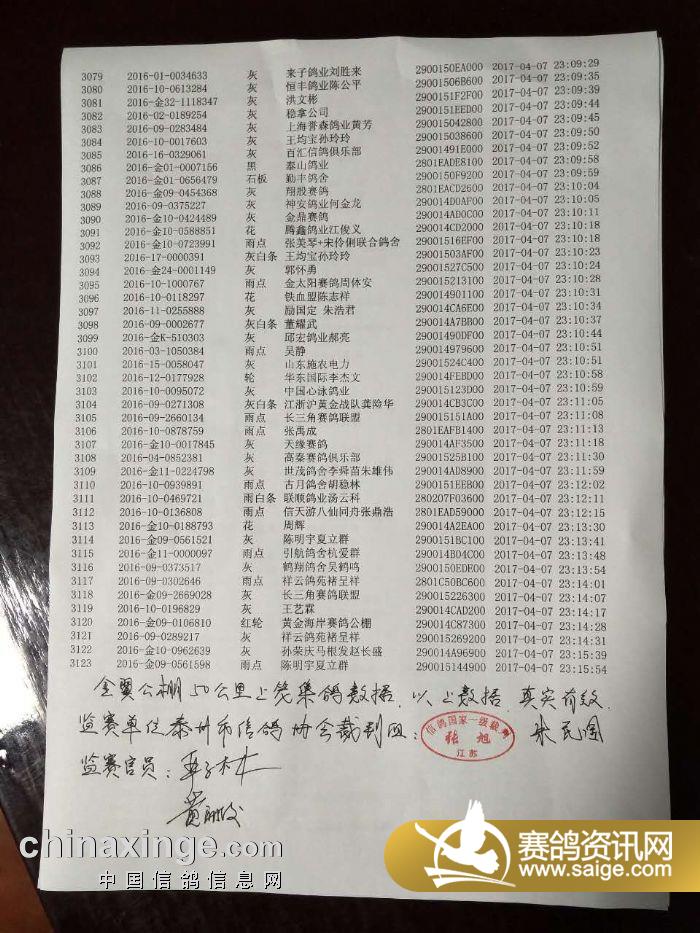 3079 2016-01-0034633 灰 来子鸽业刘胜来 2900150EA000 2017-04-07 23:09:29
3080 2016-10-0613284 灰 恒丰鸽业陈公平 29001506B600 2017-04-07 23:09:35
3081 2016-金32-1118347 灰 洪文彬 2900151F2F00 2017-04-07 23:09:39
3082 2016-02-0189254 灰 稳拿公司 2900151EED00 2017-04-07 23:09:44
3083 2016-09-0283484 灰 上海誉森鸽业黄芳 290015042800 2017-04-07 23:09:45
3084 2016-10-0017603 灰 王均宝孙玲玲 290015038600 2017-04-07 23:09:50
3085 2016-16-0329061 灰 百汇信鸽俱乐部 29001491E000 2017-04-07 23:09:52
3086 2016-金01-0007156 黑 泰山鸽业 2801EADE8100 2017-04-07 23:09:58
3087 2016-金01-0656479 石板 勤丰鸽舍 2900150F9200 2017-04-07 23:09:59
3088 2016-金09-0454368 灰 翔股赛鸽 2801EACD2600 2017-04-07 23:10:04
3089 2016-09-0375227 灰 神安鸽业何金龙 290014D0AF00 2017-04-07 23:10:05
3090 2016-金10-0424489 灰 金鼎赛鸽 290014AD0C00 2017-04-07 23:10:11
3091 2016-金10-0588851 花 腾鑫鸽业江俊义 290014CD2000 2017-04-07 23:10:18
3092 2016-金10-0723991 雨点 张美琴+宋伶俐联合鸽舍 29001516EF00 2017-04-07 23:10:18
3093 2016-17-0000391 灰白条 王均宝孙玲玲 29001503AF00 2017-04-07 23:10:23
3094 2016-金24-0001149 灰 郭怀勇 29001527C500 2017-04-07 23:10:24
3095 2016-10-1000767 雨点 金太阳赛鸽周体安 290015213100 2017-04-07 23:10:28
3096 2016-10-0118297 花 铁血盟陈志祥 290014901100 2017-04-07 23:10:31
3097 2016-11-0255888 灰 励国定 朱浩君 290014CA6E00 2017-04-07 23:10:34
3098 2016-09-0002677 灰白条 董耀武 290014A7BB00 2017-04-07 23:10:37
3099 2016-金K-510303 灰 邱宏鸽业郝亮 29001490DF00 2017-04-07 23:10:44
3100 2016-03-1050384 雨点 吴静 290014979600 2017-04-07 23:10:51
3101 2016-15-0058047 灰 山东施农电力 29001524C400 2017-04-07 23:10:51
3102 2016-12-0177928 轮 华东国际李杰文 290014FEBD00 2017-04-07 23:10:58
3103 2016-10-0095072 灰 中国心泳鸽业 290015123D00 2017-04-07 23:10:59
3104 2016-09-0271308 灰白条 江浙沪黄金战队龚险华 290014CB3C00 2017-04-07 23:11:05
3105 2016-09-2660134 雨点 长三角赛鸽联盟 29001515 1A00 2017-04-07 23:11:08
3106 2016-10-0878759 雨点 张禹成 2801EAFB1400 2017-04-07 23:11:13
3107 2016-金10-0017845 灰 天缘赛鸽 290014AF3500 2017-04-07 23:11:18
3108 2016-04-0852381 灰 高秦赛鸽俱乐部 29001525B100 2017-04-07 23:11:30
3109 2016-金11-0224798 灰 世茂鸽舍李舜苗朱雄伟 290014AD8900 2017-04-07 23:11:59
3110 2016-10-0939891 雨点 古月鸽舍胡稳林 2900151EEB00 2017-04-07 23:12:02
3111 2016-10-0469721 雨白条 联顺鸽业汤云科 280207F03600 2017-04-07 23:12:11
3112 2016-金10-0136808 雨点 信天游八仙同舟张鼎浩 2801EAD59000 2017-04-07 23:12:15
3113 2016-金10-0188793 花 周辉 290014A2EA00 2017-04-07 23:13:30
3114 2016-金09-0561521 灰 陈明宇夏立群 2900151BC100 2017-04-07 23:13:41
3115 2016-金11-0000097 雨点 引航鸽舍杭爱群 290014B04C00 2017-04-07 23:13:48
3116 2016-09-0373517 灰 鹤翔鸽舍吴鹤鸣 2900150EDE00 2017-04-07 23:13:54
3117 2016-09-0302646 雨点 祥云鸽苑褚呈祥 2801C50BC600 2017-04-07 23:14:01
3118 2016-金09-2669028 灰 长三角赛鸽联盟 290015226300 2017-04-07 23:14:07
3119 2016-10-0196829 灰 王艺霖 290014CAD200 2017-04-07 23:14:17
3120 2016-金09-0106810 红轮 黄金海岸赛鸽公棚 290014C87300 2017-04-07 23:14:28
3121 2016-09-0289217 灰 祥云鸽苑褚呈祥 290015269200 2017-04-07 23:14:31
3122 2016-金10-0962639 灰 孙荣庆马根发赵长盛 290014A96900 2017-04-07 23:15:39
3123 2016-金09-0561598 雨点 陈明宇夏立群 290015144900 2017-04-07 23:15:54
金翼公棚50公里上笼集鸽数据,以上数据真实有效
监赛单位泰州市信鸽协会裁判组: 朱民国
信鸽国家一级裁判
张旭
江苏
监赛官员:
chinaxinge.com
中国信鸽信息网
赛鸽资讯网
www.saige.com